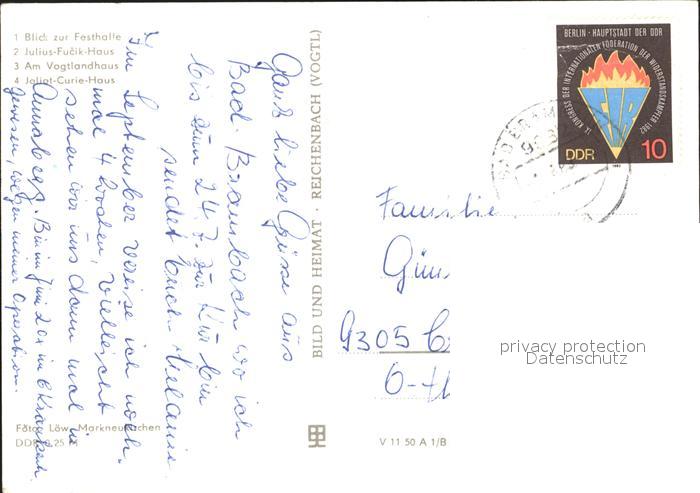 1 Blick zur Festhalle
2 Julius-Fučik-Haus
3 Am Vogtlandhaus
4 Joliot-Curie-Haus
Ganz liebe Grüsse aus
Bad. Brambach wo ich
bis zum 24.7. zur Kur bin
sendet Euch Melanie
Im September reise ich noch
mal 4 Wochen, vielleicht
sehen wir uns dann mal in
Annaberg. Bin im Juni 20 in
gewesen, wegen meiner Operation.
Foto: Löw, Markneukirchen
DDR 0,25 M
BILD UND HEIMAT · REICHENBACH (VOGTL)
V 11 50 A 1/B
BERLIN · HAUPTSTADT DER DDR
IX. KONGRESS DER INTERNATIONALEN FÖDERATION DER WIDERSTANDSKÄMPFER 1982
FIR
DDR 10
Familie
Gün
9305
privacy protection
Datenschutz